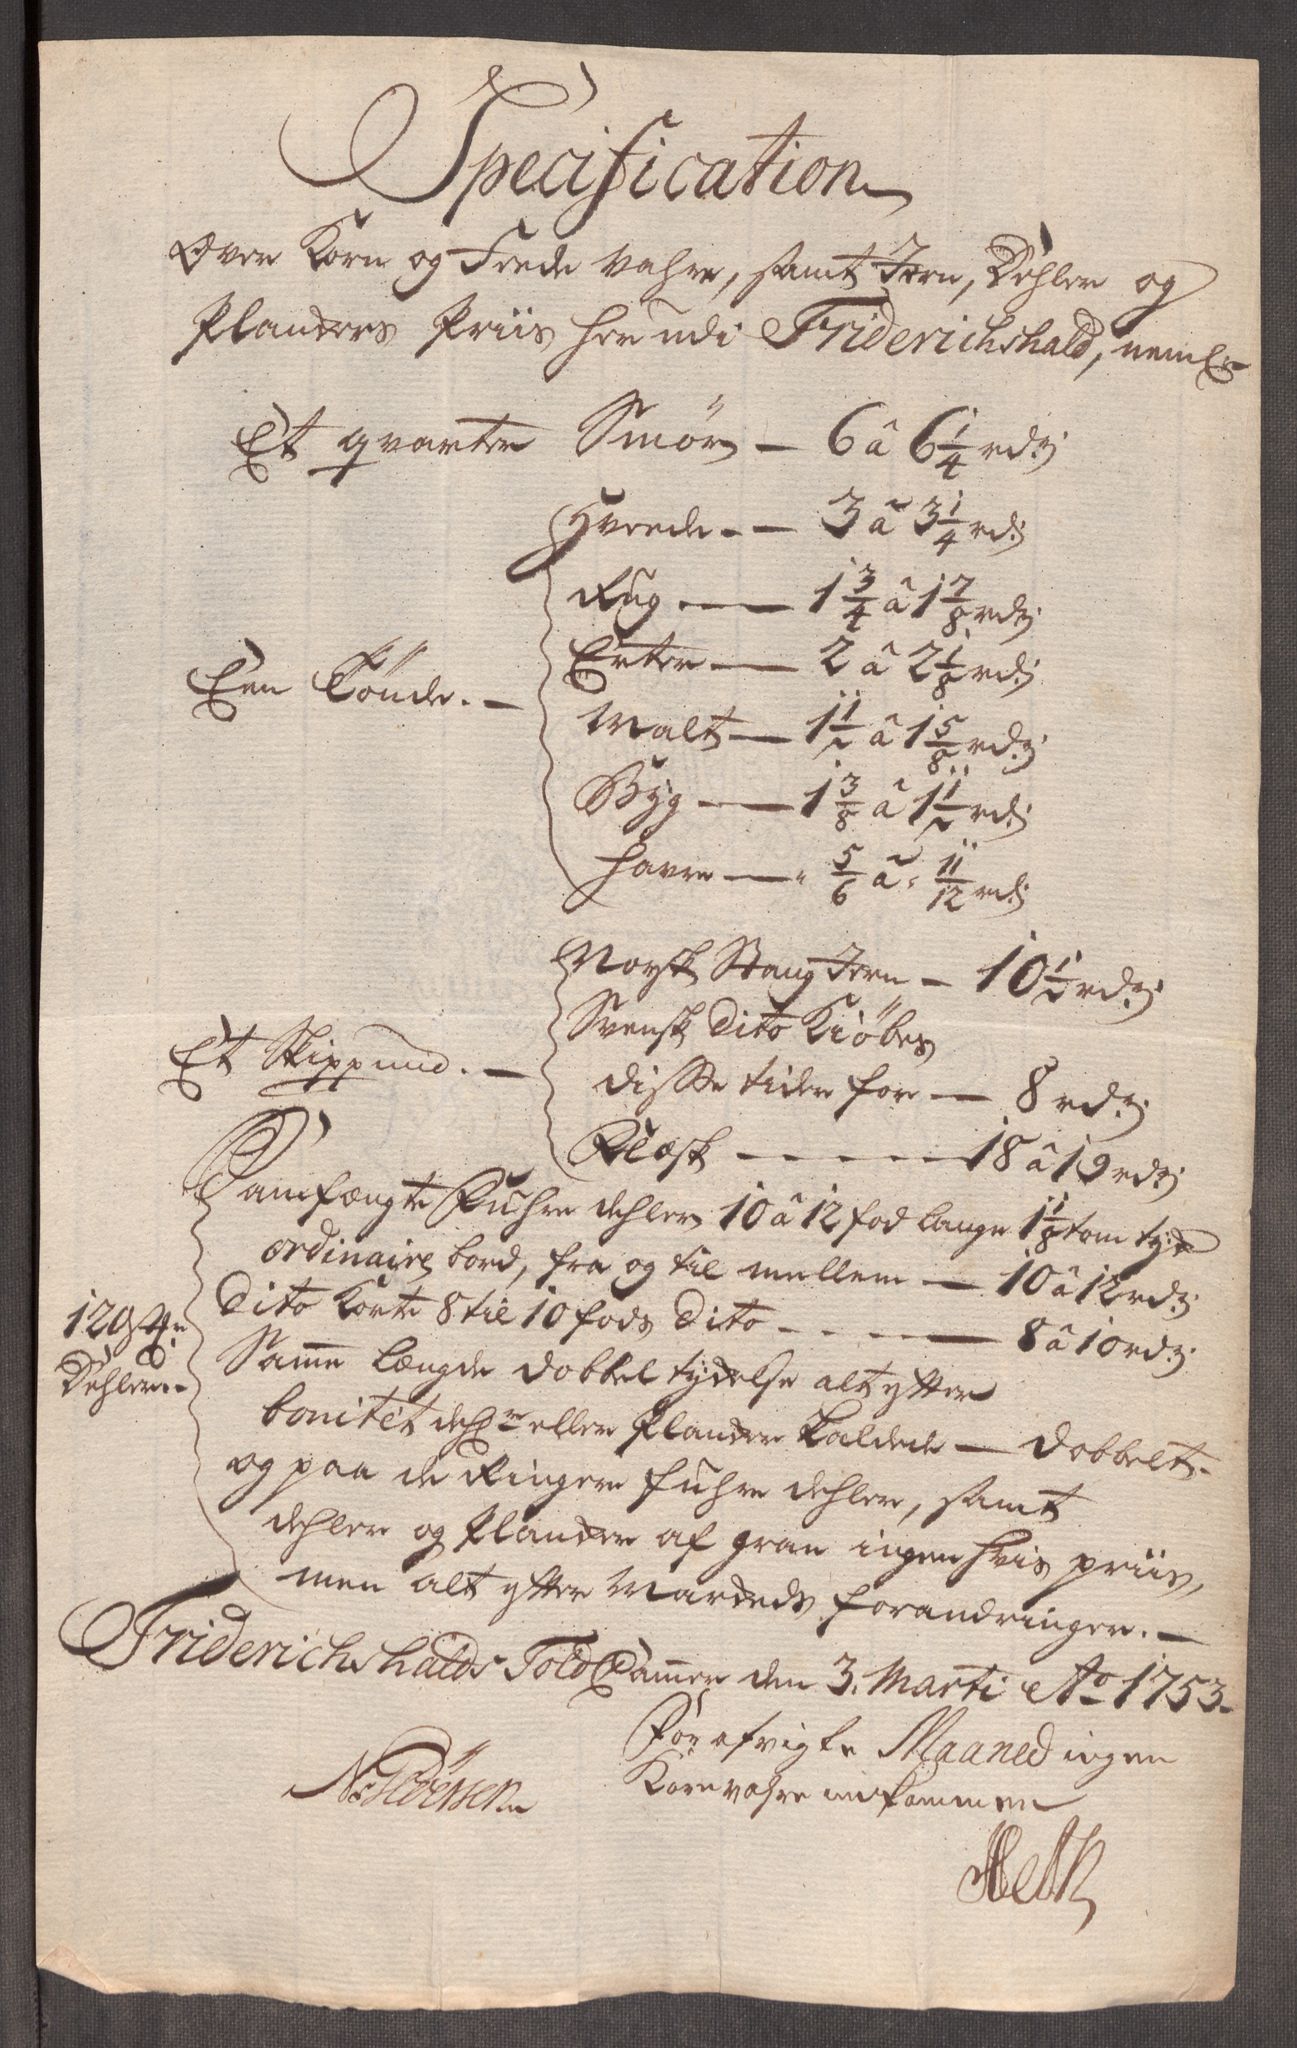 Specification
Over Korn og Feede Vahre, samt Jern, Dehler og
Planckers Priis her udi Friderichshald, nemlig
Et qvarter Smör — 6 â 6 1/4 rd:
Hveede — 3 â 3 1/4 rd:
Rug — 1 3/4 â 1 7/8 rd:
Erter — 2 â 2 1/8 rd:
Een Tönde. —
Malt — 1 1/2 â 1 5/8 rd:
Byg — 1 3/8 â 1 1/2 rd:
Havre — " 5/6 â " 11/12 rd:
Norsk Stang Jern — 10 1/2 rd:
Svensk Dito Kiöbes
Et Skippund. —
disse tider for — 8 rd:
Flæsk — 18 â 19 rd:
Samfængte Fuhre dehler 10 â 12 fod lange 1 1/8 tom tyk
ordinaire bord, fra og til mellem — 10 â 12 rd:
Dito Korte 8 til 10 fods Dito — 8 â 10 rd:
120 St:
Dehler.
Samme Længde dobbel tydelse alt efter
bonitet dehlr eller Plancker kaldede — dobbelt.
og paa de Ringere fuhre dehler, samt
dehler og Plancker af gran ingen hvis priis,
men alt efter Marckeds forandringer. —
Friderichshalds Told Cammer den 3. Marti Ao 1753.
For afvigte Maaned ingen
Kornvahre indkommen
N: Pedersen